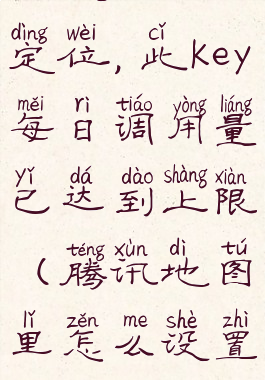 dìng wèi cǐ
定位，此Key
měi rì tiáo yòng liáng
每日调用量
yǐ dá dào shàng xiàn
已达到上限
téng xùn dì tú
（腾讯地图
lǐ zěn me shè zhì
里怎么设置